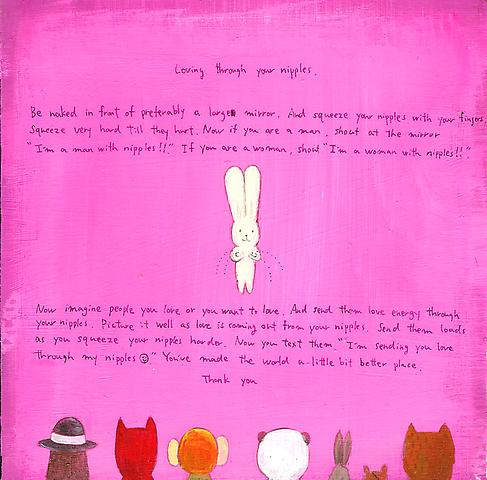 Loving through your nipples.
Be naked in front of preferably a large mirror. And squeeze your nipples with your fingers.
Squeeze very hard till they hurt. Now if you are a man, shout at the mirror
"I'm a man with nipples!!" If you are a woman, shout "I'm a woman with nipples!!".
Now imagine people you love or you want to love. And send them love energy through
your nipples. Picture it well as love is coming out from your nipples. Send them loads
as you squeeze your nipples harder. Now you text them "I'm sending you love
through my nipples☺." You've made the world a little bit better place.
Thank you